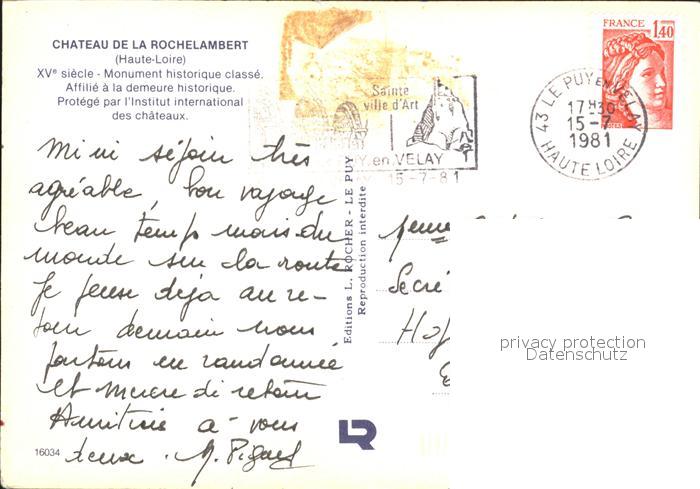 CHATEAU DE LA ROCHELAMBERT
(Haute-Loire)
XVe siècle - Monument historique classé.
Affilié à la demeure historique.
Protégé par l'Institut international
des châteaux.
Mini séjour très
agréable, bon voyage
beau temps mais du
monde sur la route
Je pense déjà au re-
tour demain nous
partons en randonnée
et mercredi retour
Amitiés à vous
deux.
16034
Editions L. ROCHER - LE PUY
Reproduction interdite
Sainte
ville d'Art
PUY en VELAY
15-7-81
FRANCE
1,40
43 LE PUY EN VELAY
17H30
15-7
1981
HAUTE LOIRE
Mme
Secré
Hop
privacy protection
Datenschutz
LR